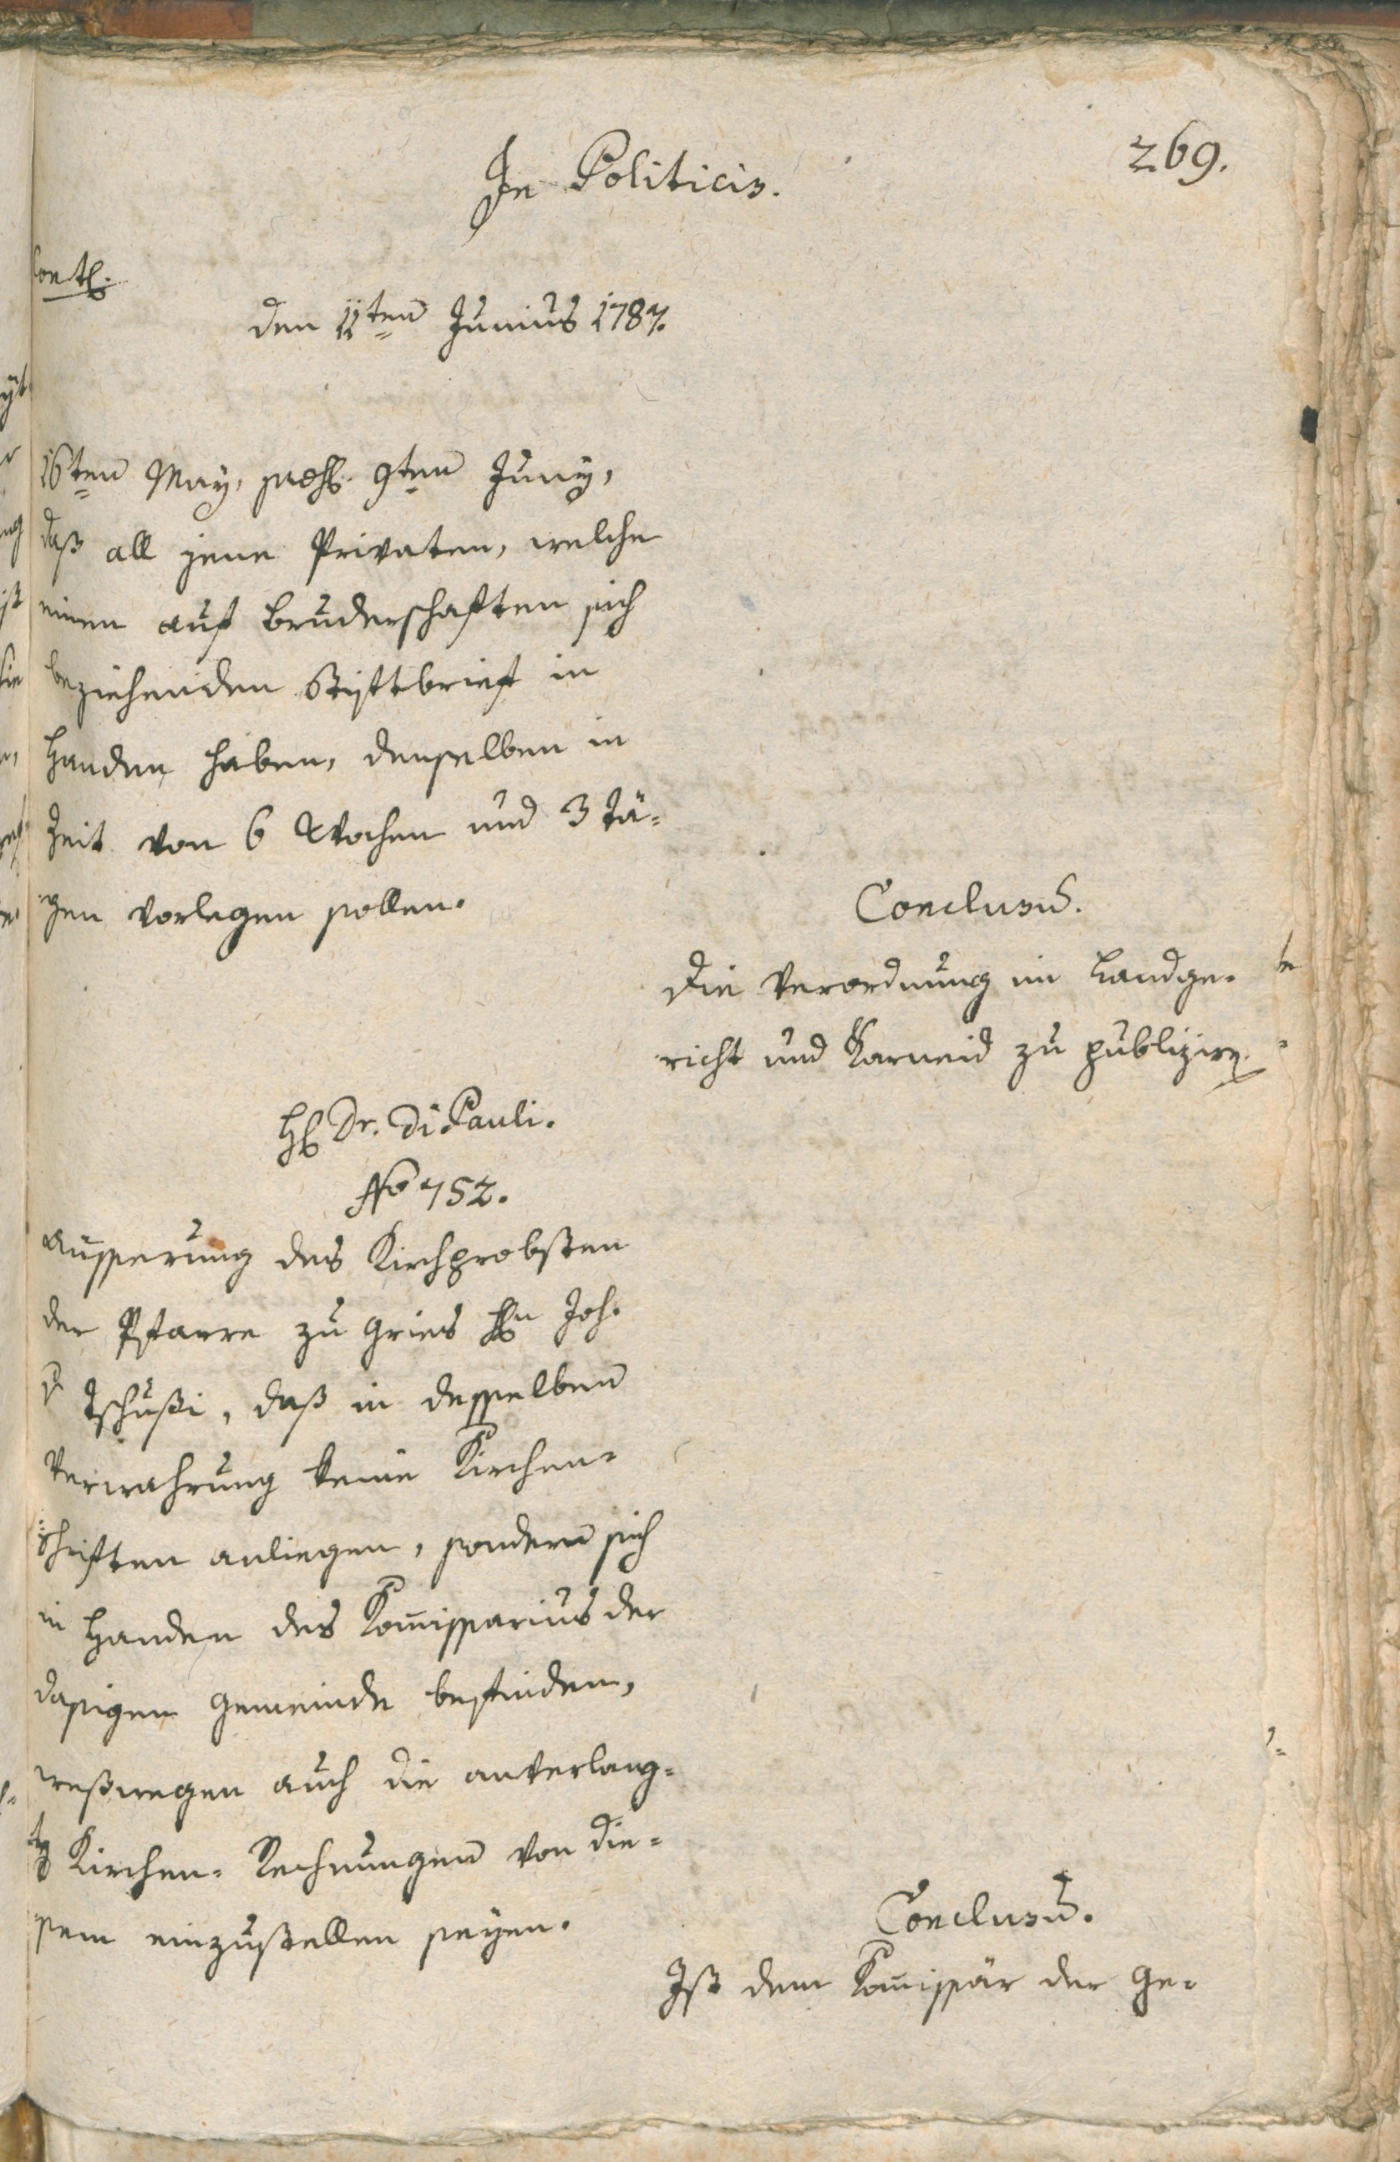 269.
In Politicis.
den 11ten Junius 1787.
16ten May, 9ten Juny,
daß all jene Privaten, welche
einen auf Bruderschaften sich
beziehenden Stiftbrief in
Handen haben, denselben in
Zeit von 6 Wochen und 3 Tä-
gen vorlegen sollen.
Conclusũ.
Die Verordnung im Landge-
richt und Karneid zu publizirn.
H Dr. Di Pauli.
No 752.
Äusserung des Kirchprobsten
der Pfarre zu Gries Hn Joh.
v Tschußi, daß in desselben
Verwahrung keine Kirchen-
schriften anliegen, sondern sich
in Handen des Kom̃issarius der
dasigen Gemeinde befinden,
weßwegen auch die anverlang-
tn Kirchen-Rechnungen von die-
sem einzustellen seyen.
Conclusũ.
Ist dem Kom̃issär der Ge-